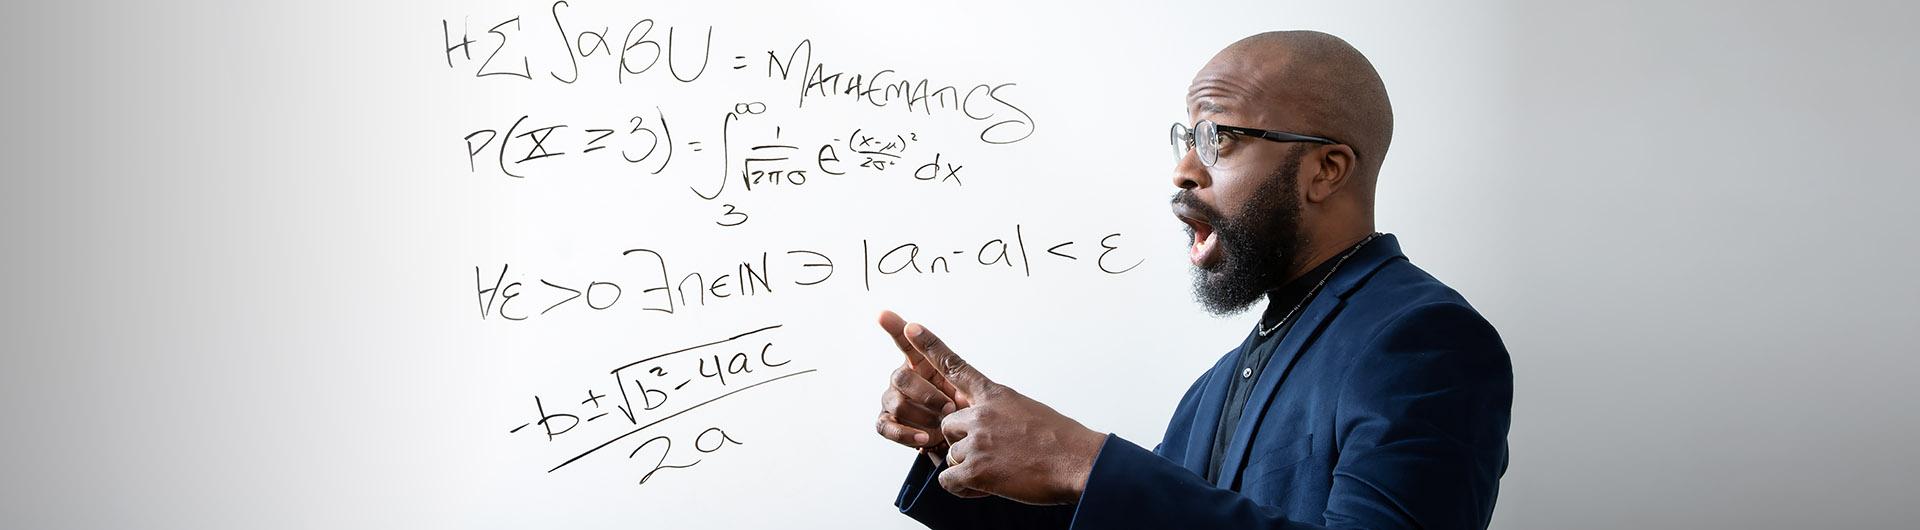 H Σ ∫ α β U = MATHEMATICS
P(X ≥ 3) = ∫₃^∞ 1/(√2π σ) e^(-(x-μ)²/2σ²) dx
∀ε>0 ∃n∈ℕ ∋ |aₙ-a| < ε
(-b±√(b²-4ac))/2a